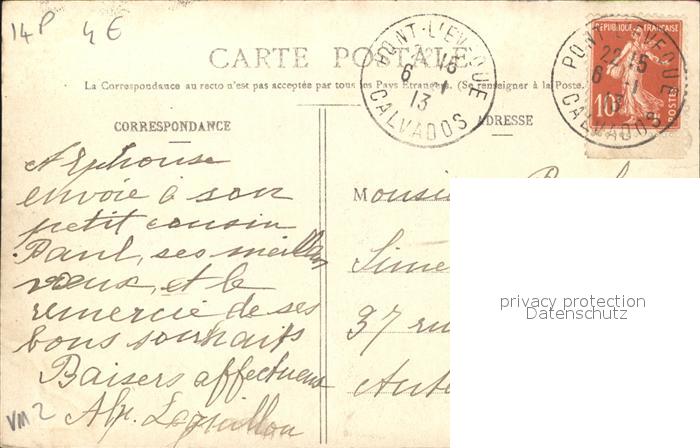 14P 4E
CARTE POSTALE
La Correspondance au recto n'est pas acceptée par tous les Pays Étrangers. (Se renseigner à la Poste.
PONT-L'EVEQUE
22 15
6 -1
13
CALVADOS
REPUBLIQUE FRANÇAISE
10
POSTES
PONT-L'EVEQUE
22 15
6 -1
13
CALVADOS
CORRESPONDANCE
ADRESSE
Alphonse
envoie à son
petit cousin
Paul, ses meilleurs
vœux, et le
remercie de ses
bons souhaits
Baisers affectueux
Alp.
VM2
Monsieur
Sime
37 ru
privacy protection
Datenschutz